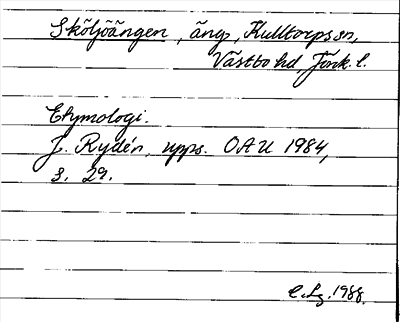 Sköljöängen, äng, Kulltorps sn,
Västbo hd, Jönk. l.
Etymologi.
J. Rydén, upps. OAU 1984,
s. 29.
1988.